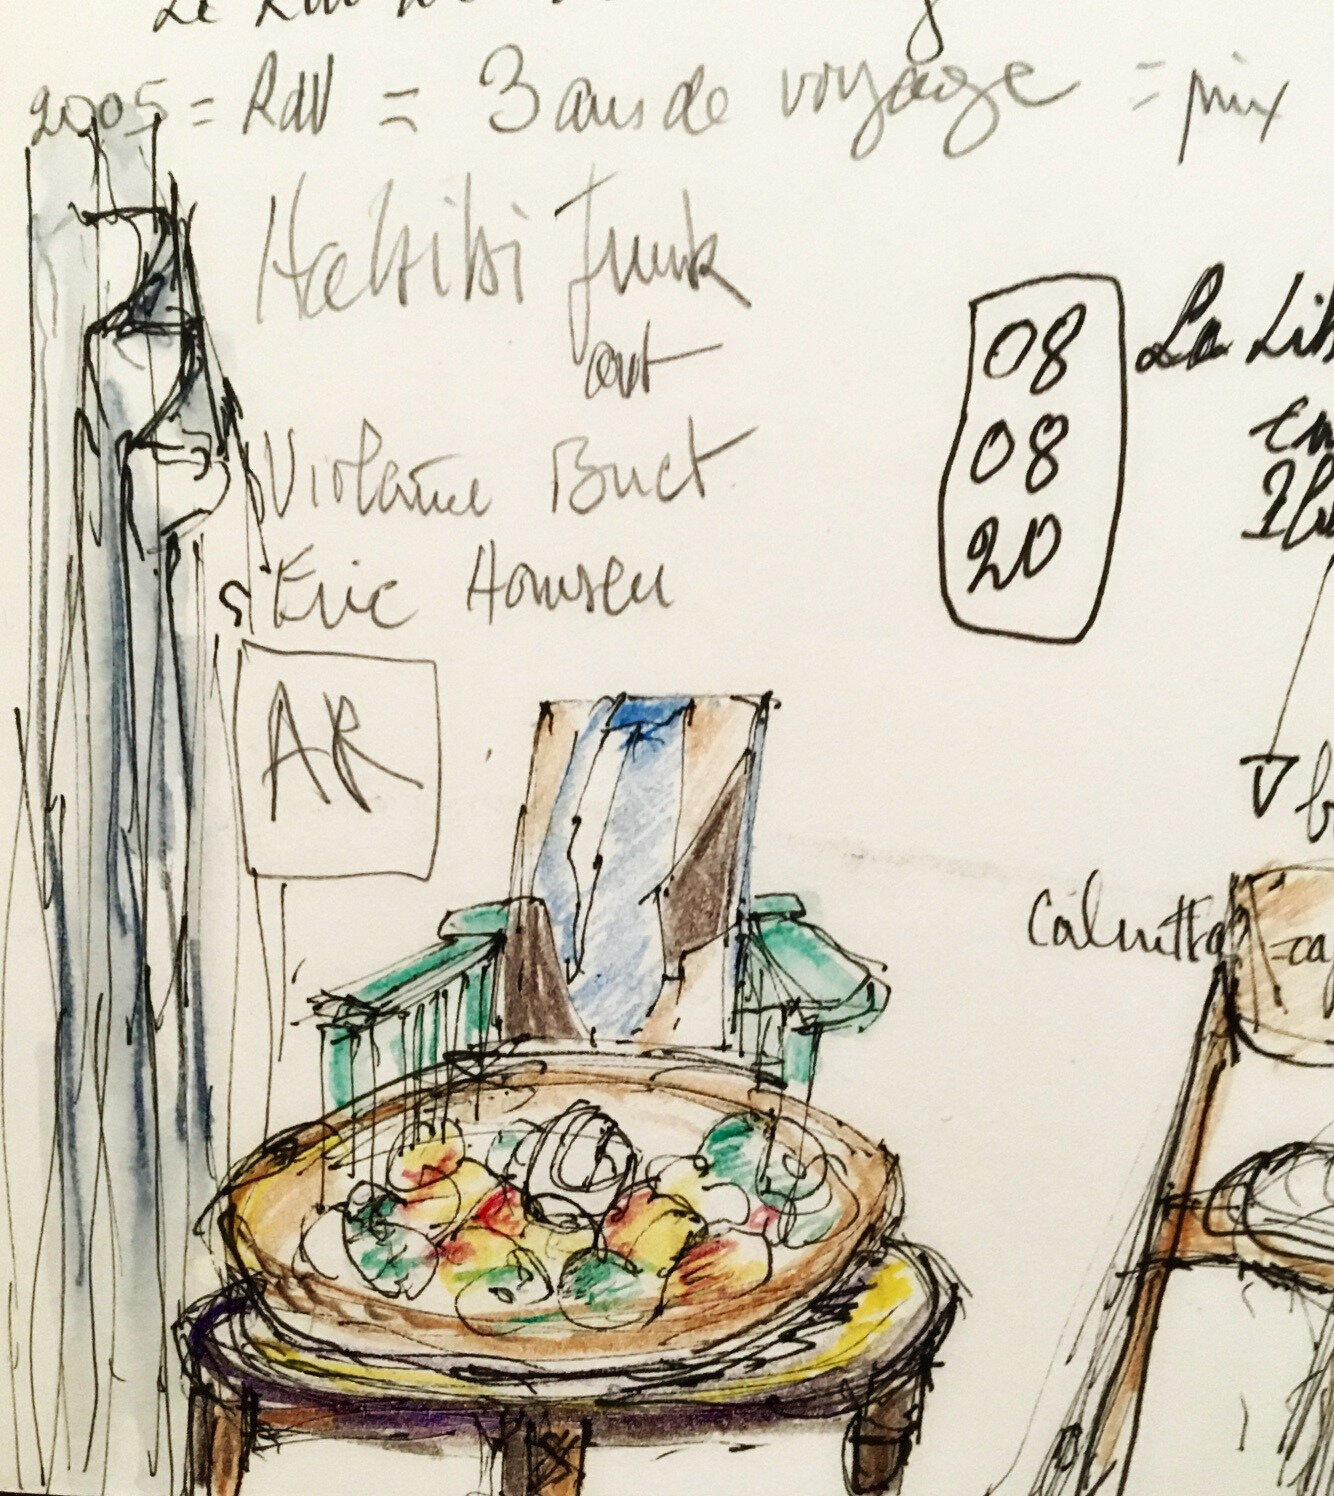 Le
2005 = RdV = 3 ans de voyage = prix
Habibi Funk
out
Violaine Buet
Eric Hansen
AR
08
08
20
La Lib
em
Calcutta = caf